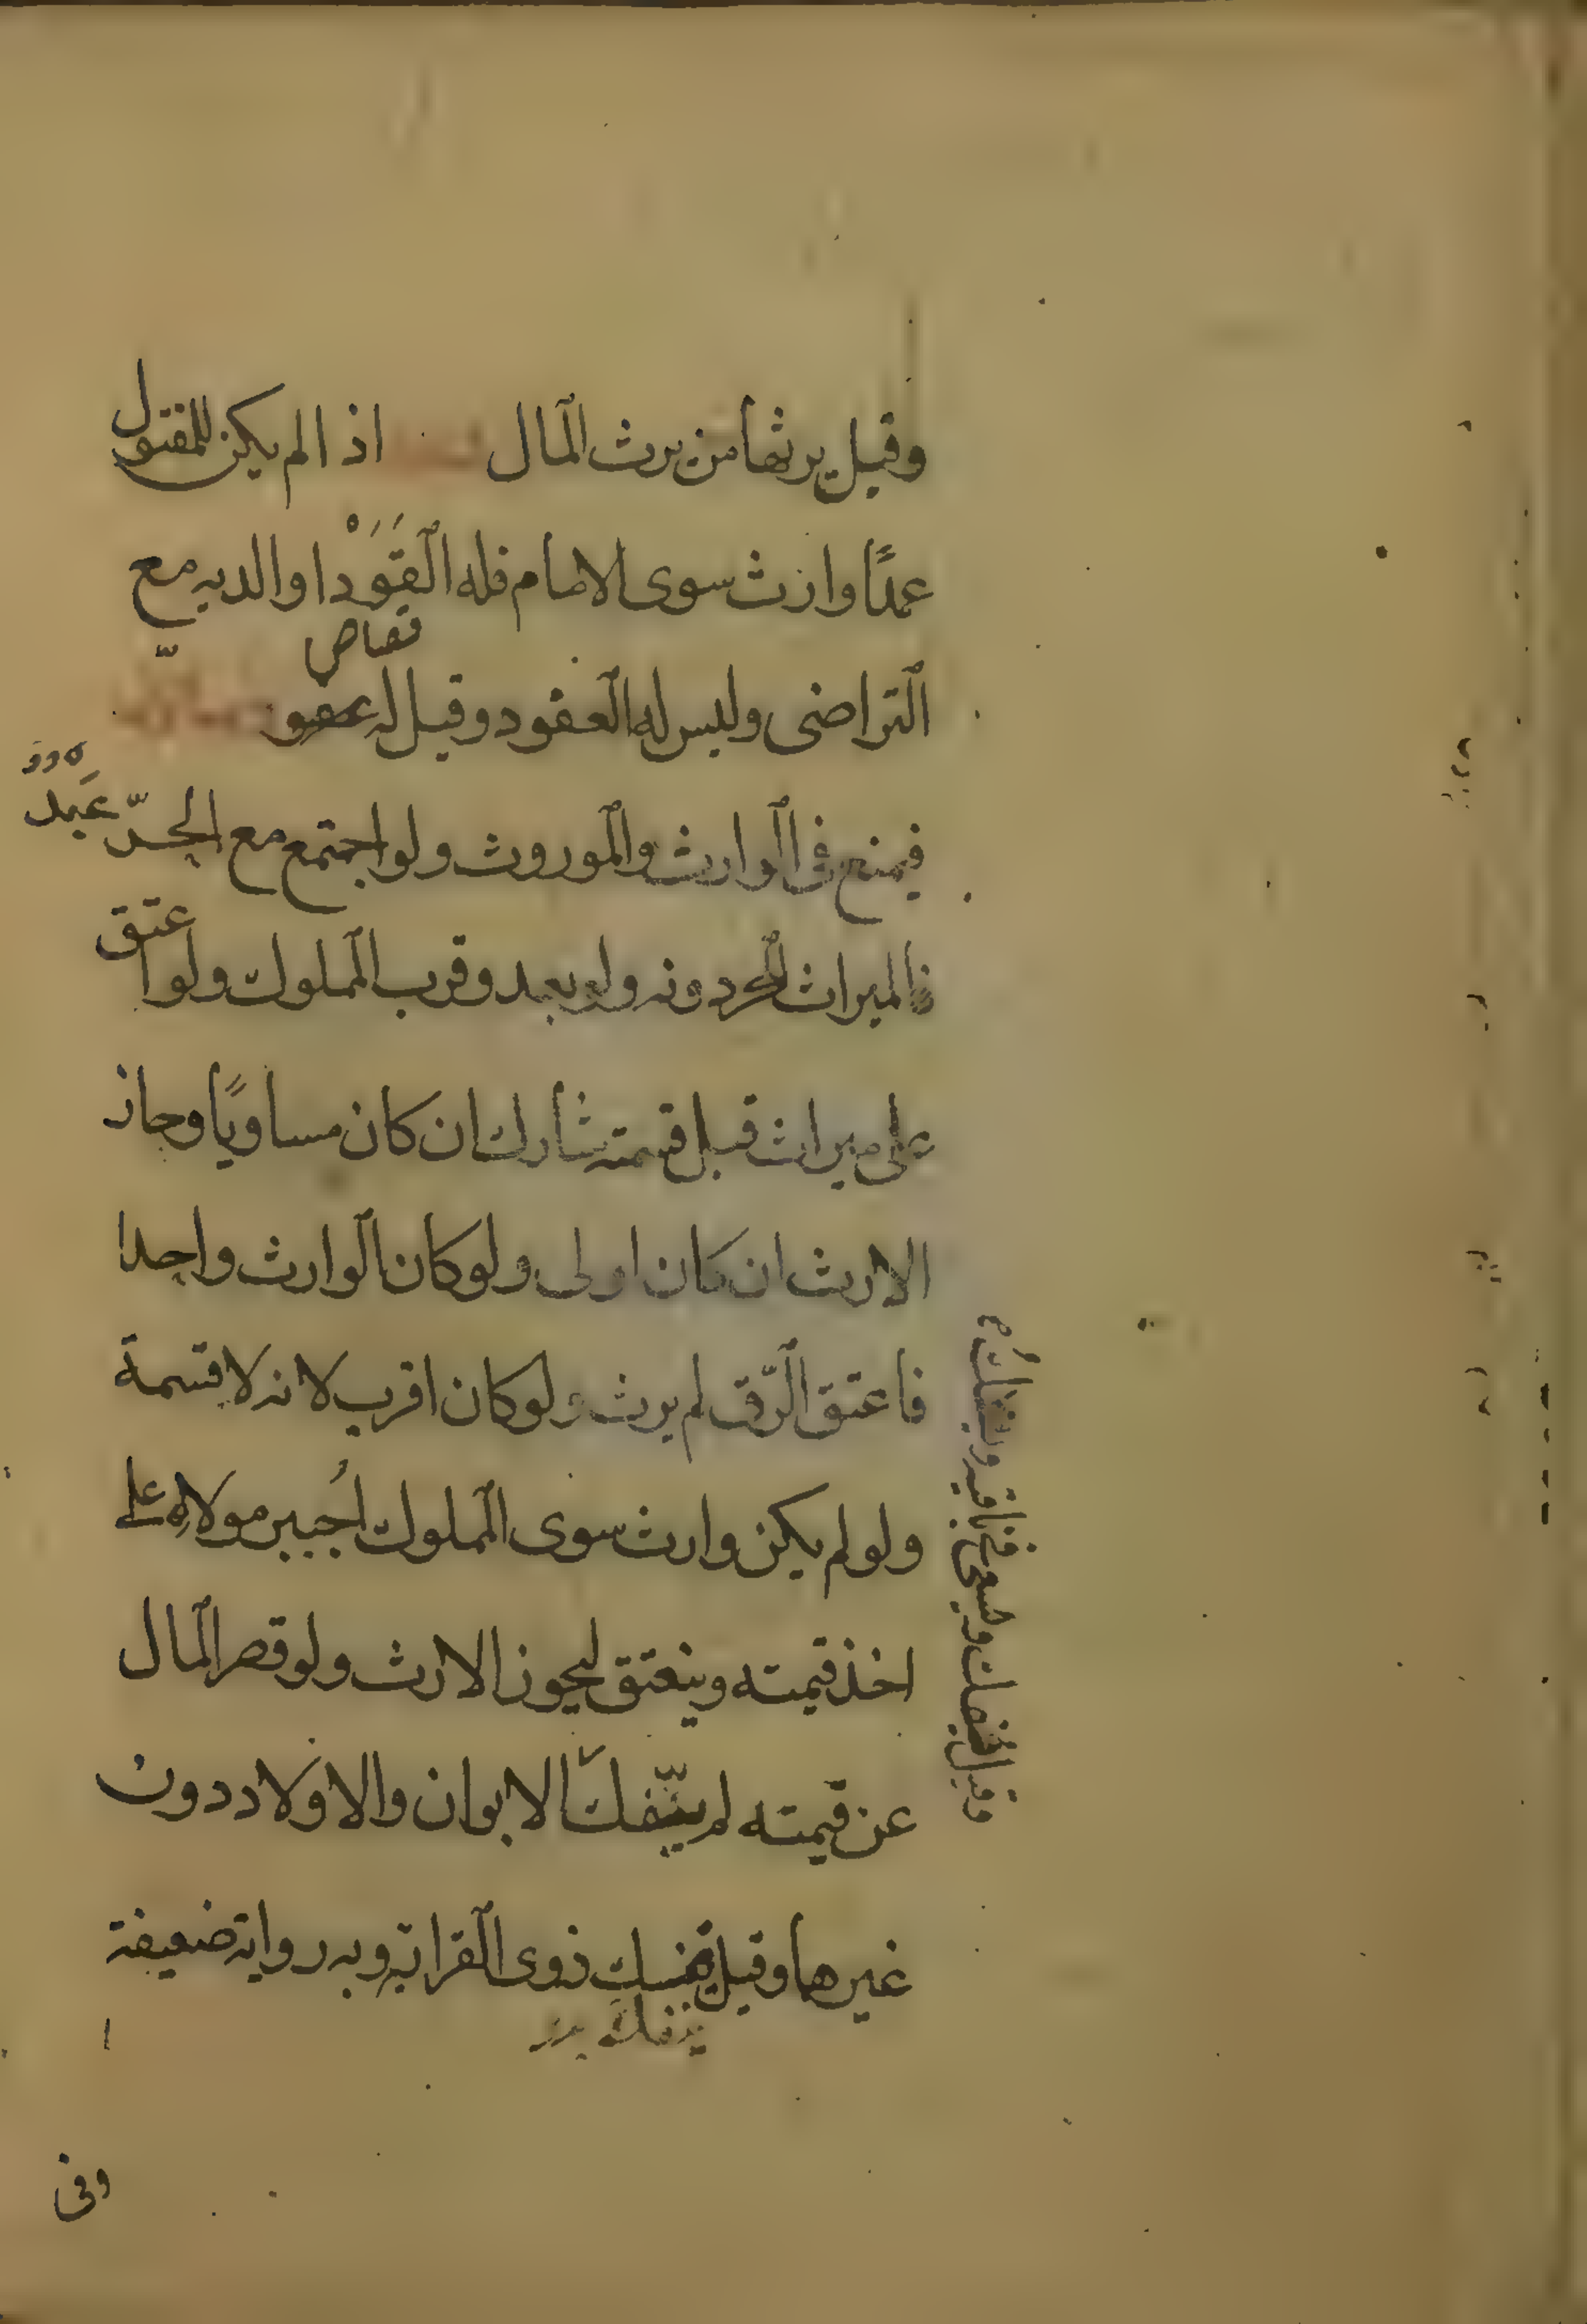 وقيل يرثها من يرث المال اذا لم يكن للمقتول
عمدًا وارث سوى الامام فله القَوَدْ او الديه مع
قصاص
التراضى وليس له العفو د وقيل له عفو
فيمنع فى الوارث والموروث ولو اجتمع مع الحرّ عَبد
فالميراث للحر دونه ولو بعد وقرب المملوك ولو اعتق
على ميراث قبل قسمته شارك ان كان مساويًا وحاز
الارث ان كان اولى ولو كان الوارث واحدا
فاعتق الرّق لم يرث ولو كان اقرب لانه لا قسمة
ولو لم يكن وارث سوى المملوك اُجبر مولاه على
اخذ قيمته وينعتق ليحوز الارث ولو قصر المال
عن قيمته لم ينفكّ الابوان والاولاد دون
غيرهما وقيل ذوى القرابة وبه رواية ضعيفة
ينفك
وقيل يفك ويسعى فى باقيه
وفى